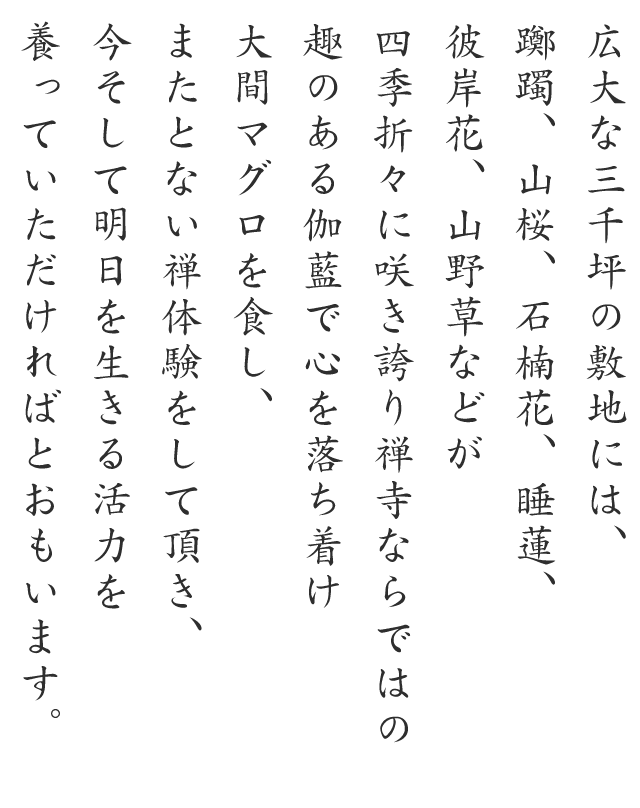 広大な三千坪の敷地には、
躑躅、山桜、石楠花、睡蓮、
彼岸花、山野草などが
四季折々に咲き誇り禅寺ならではの
趣のある伽藍で心を落ち着け
大間マグロを食し、
またとない禅体験をして頂き、
今そして明日を生きる活力を
養っていただければとおもいます。